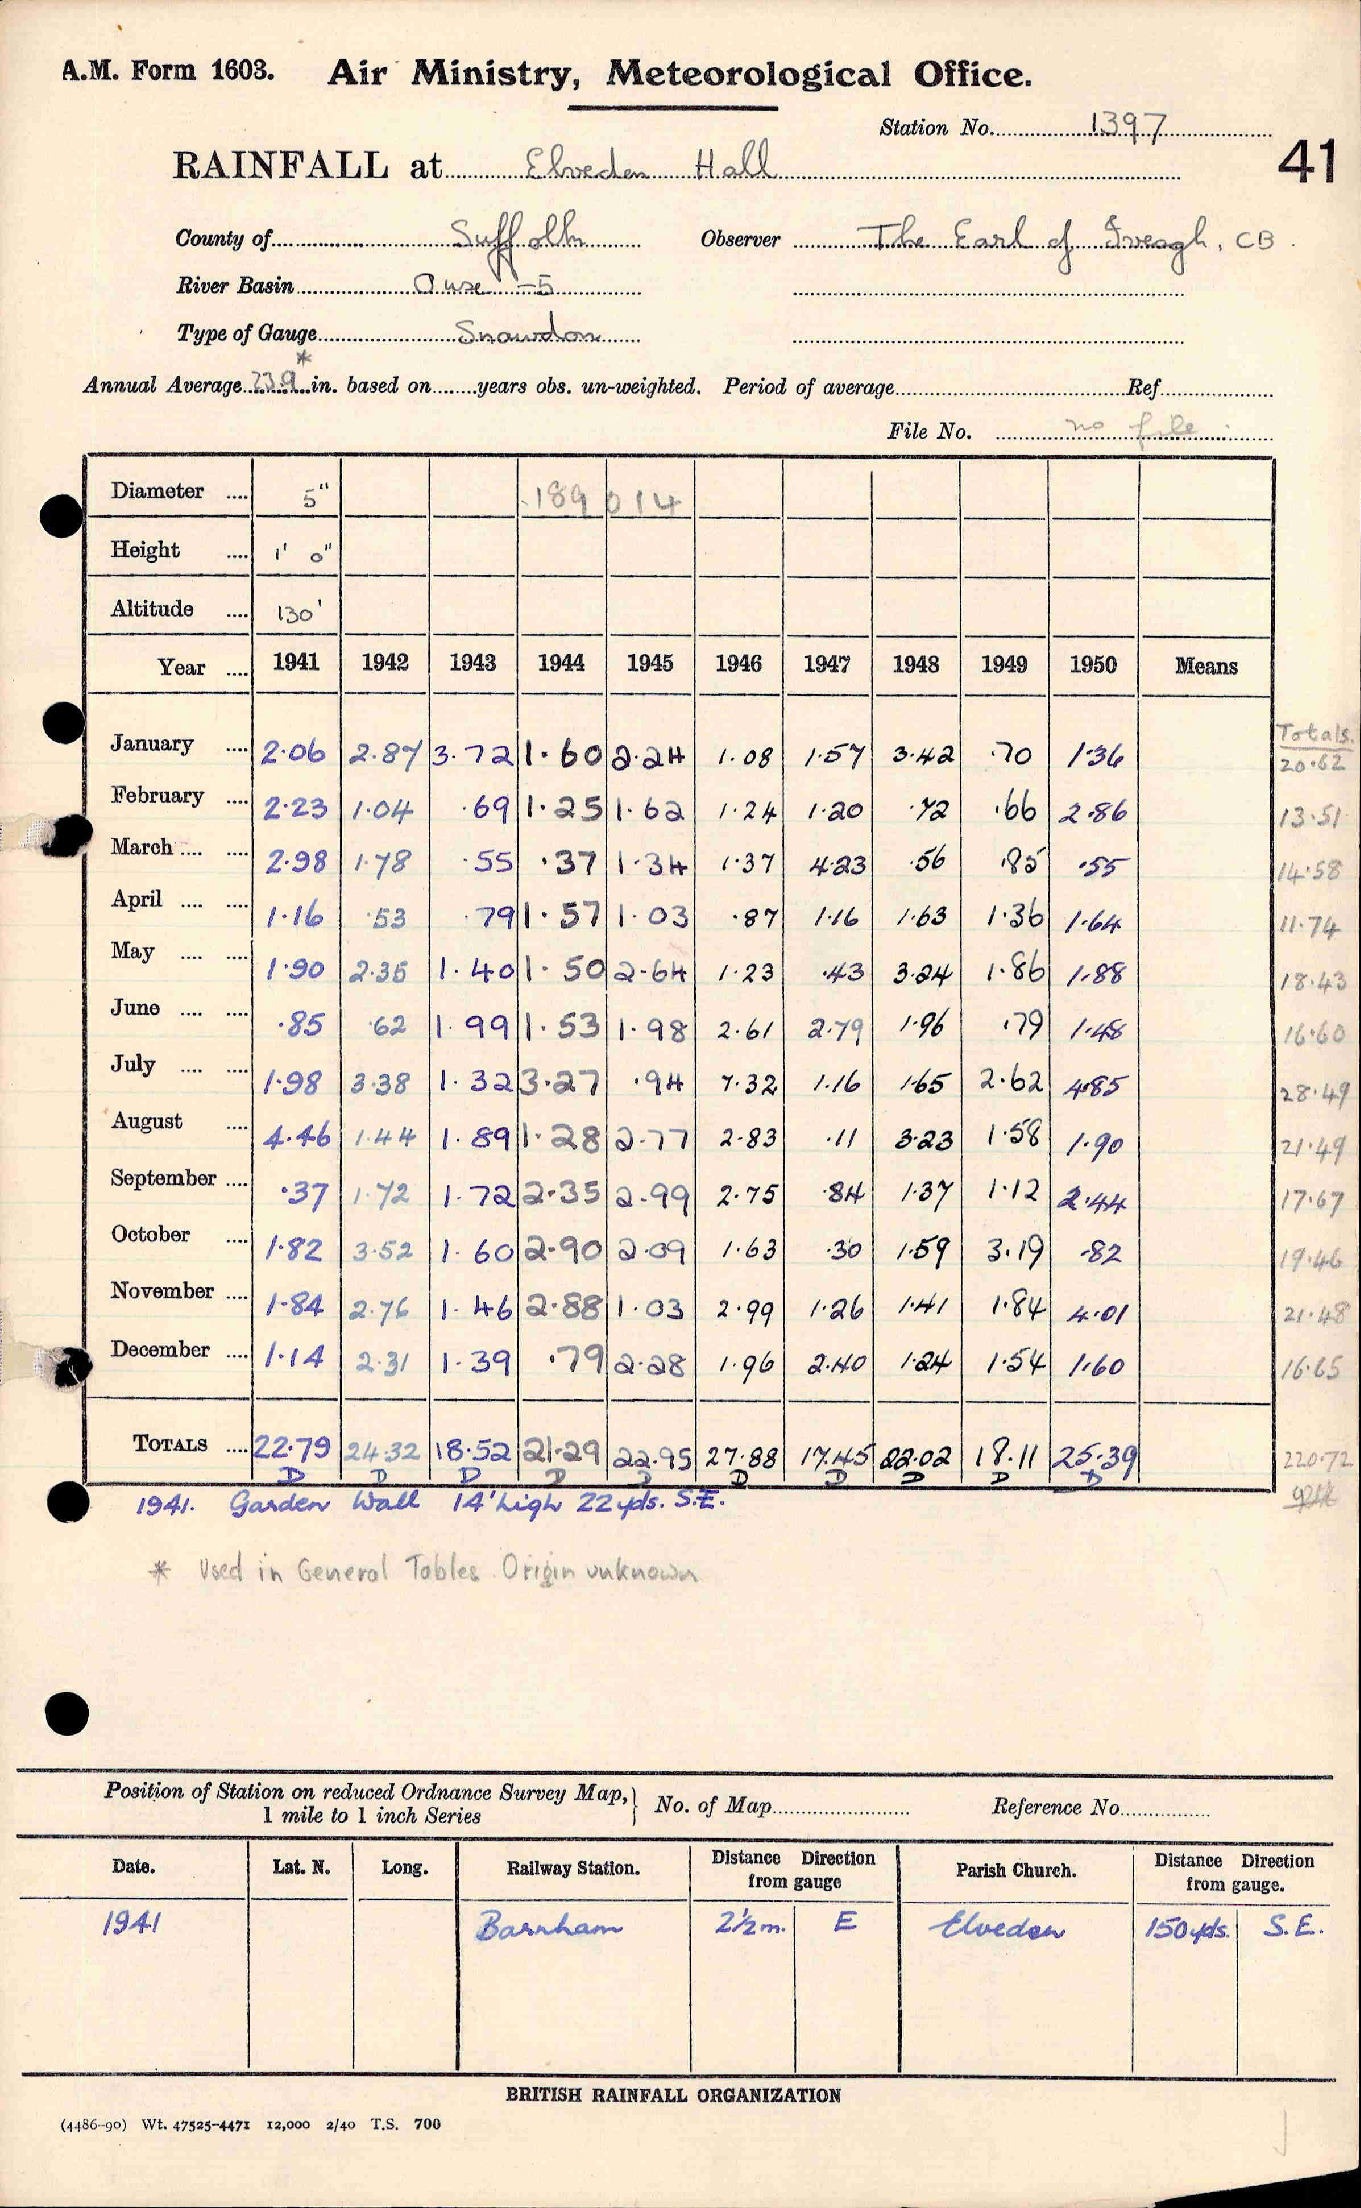 A.M. Form 1603. Air Ministry, Meteorological Office.
Station No. 1397
41
RAINFALL at Elveden Hall
County of Suffolk Observer The Earl of Iveagh, CB.
River Basin Ouse -5
Type of Gauge Snowdon
Annual Average 23.9* in. based on years obs. un-weighted. Period of average Ref
File No. no file
Diameter .... 5" 189014
Height .... 1' 0"
Altitude .... 130'
Year .... 1941 1942 1943 1944 1945 1946 1947 1948 1949 1950 Means
Totals.
January .... 2.06 2.87 3.72 1.60 2.24 1.08 1.57 3.42 .70 1.36 20.62
February .... 2.23 1.04 .69 1.25 1.62 1.24 1.20 .72 .66 2.86 13.51
March .... .... 2.98 1.78 .55 .37 1.34 1.37 4.23 .56 .85 .55 14.58
April .... .... 1.16 .53 .79 1.57 1.03 .87 1.16 1.63 1.36 1.64 11.74
May .... .... 1.90 2.35 1.40 1.50 2.64 1.23 .43 3.24 1.86 1.88 18.43
June .... .... .85 .62 1.99 1.53 1.98 2.61 2.79 1.96 .79 1.48 16.60
July .... .... 1.98 3.38 1.32 3.27 .94 7.32 1.16 1.65 2.62 4.85 28.49
August .... 4.46 1.44 1.89 1.28 2.77 2.83 .11 3.23 1.58 1.90 21.49
September .... .37 1.72 1.72 2.35 2.99 2.75 .84 1.37 1.12 2.44 17.67
October .... 1.82 3.52 1.60 2.90 2.09 1.63 .30 1.59 3.19 .82 19.46
November .... 1.84 2.76 1.46 2.88 1.03 2.99 1.26 1.41 1.84 4.01 21.48
December .... 1.14 2.31 1.39 .79 2.28 1.96 2.40 1.24 1.54 1.60 16.65
TOTALS .... 22.79 24.32 18.52 21.29 22.95 27.88 17.45 22.02 18.11 25.39 220.72
D D D D D D D D D D
1941. Garden Wall 14' high 22 yds. S.E.
* Used in General Tables. Origin unknown
Position of Station on reduced Ordnance Survey Map, } No. of Map Reference No.
1 mile to 1 inch Series
Date. Lat. N. Long. Railway Station. Distance Direction from gauge Parish Church. Distance Direction from gauge.
1941 Barnham 2½m. E Elveden 150 yds. S.E.
BRITISH RAINFALL ORGANIZATION
(4486-90) Wt. 47525-4471 12,000 2/40 T.S. 700